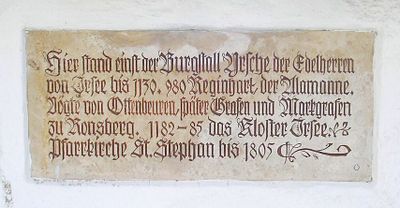 Hier stand einst der Burgstall Ursche der Edelherren
von Irsee bis 1130. 980 Reginhart der Alamanne.
Vögte von Ottenbeuren, später Grafen und Markgrafen
zu Ronsberg. 1182-85 das Kloster Irsee.
Pfarrkirche St. Stephan bis 1805